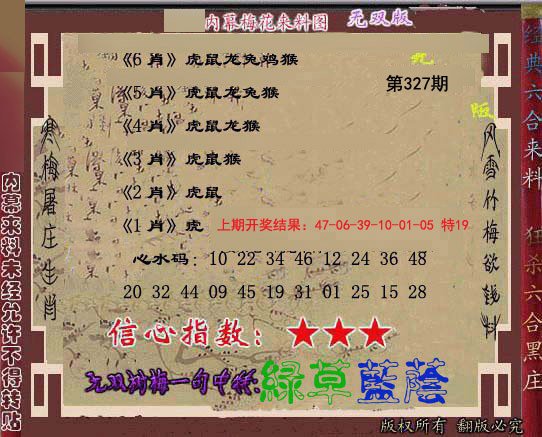 内幕梅花来料图 无双版
《6 肖》虎鼠龙兔鸡猴
《5 肖》虎鼠龙兔猴
第327期
《4 肖》虎鼠龙猴
《3 肖》虎鼠猴
《2 肖》虎鼠
《1 肖》虎 上期开奖结果：47-06-39-10-01-05 特19
心水码：10 22 34 46 12 24 36 48
20 32 44 09 45 19 31 01 25 15 28
信心指数：★★★
一句中特:綠草藍蔭
版权所有 翻版必究
寒梅屠庄生肖
风雪竹梅欲钱料
内幕来料未经允许不得转贴
经典六合来料 狂杀六合黑庄